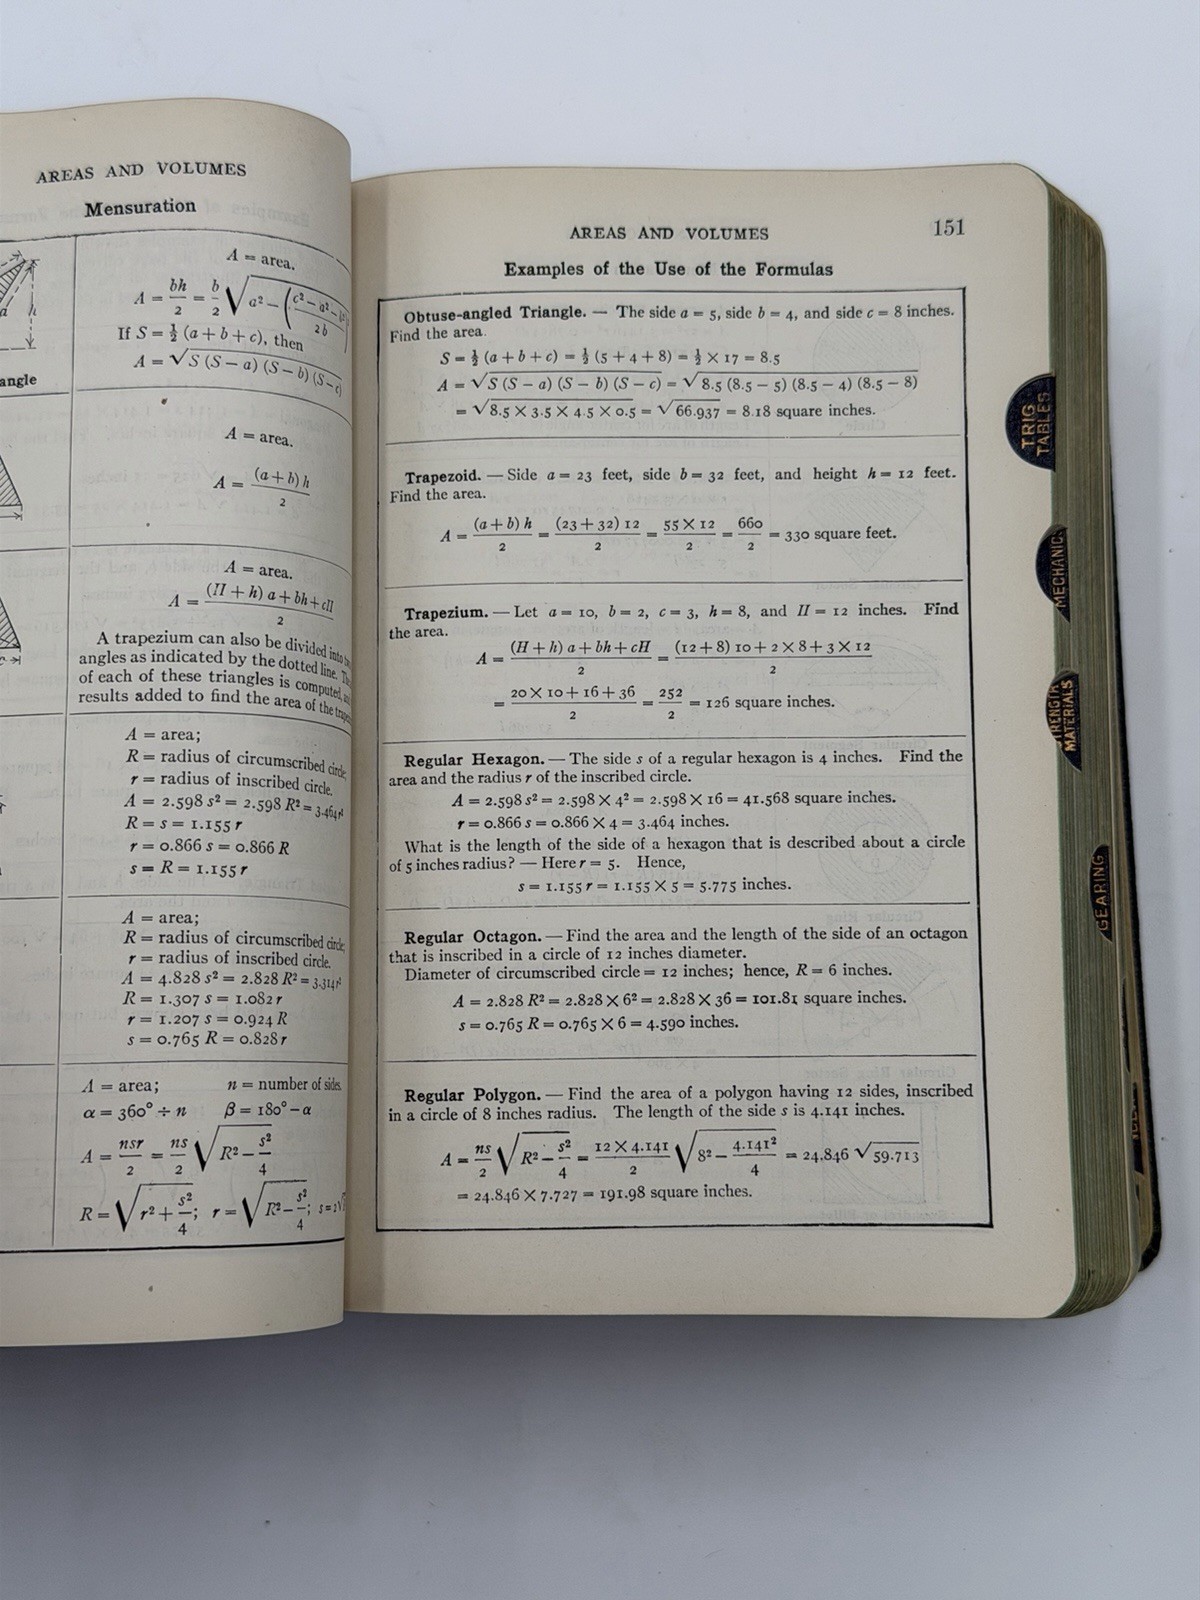 AREAS AND VOLUMES
Mensuration
A = area.
A = bh/2 = b/2 √(a² − ((c² − a² − b²)/2b)
If S = ½ (a + b + c), then
A = √(S (S − a) (S − b) (S − c))
angle
A = area.
A = (a + b) h / 2
A = area.
A = ((H + h) a + bh + cH) / 2
A trapezium can also be divided into
angles as indicated by the dotted line. The
of each of these triangles is computed,
results added to find the area of the
A = area;
R = radius of circumscribed circle;
r = radius of inscribed circle.
A = 2.598 s² = 2.598 R² = 3.464 r²
R = s = 1.155 r
r = 0.866 s = 0.866 R
s = R = 1.155 r
A = area;
R = radius of circumscribed circle;
r = radius of inscribed circle.
A = 4.828 s² = 2.828 R² = 3.314 r²
R = 1.307 s = 1.082 r
r = 1.207 s = 0.924 R
s = 0.765 R = 0.828 r
A = area; n = number of sides.
α = 360° ÷ n β = 180° − α
A = nsr/2 = ns/2 √(R² − s²/4)
R = √(r² + s²/4); r = √(R² − s²/4); s = 2√
AREAS AND VOLUMES 151
Examples of the Use of the Formulas
Obtuse-angled Triangle. — The side a = 5, side b = 4, and side c = 8 inches.
Find the area.
S = ½ (a + b + c) = ½ (5 + 4 + 8) = ½ × 17 = 8.5
A = √(S (S − a) (S − b) (S − c)) = √(8.5 (8.5 − 5) (8.5 − 4) (8.5 − 8))
= √(8.5 × 3.5 × 4.5 × 0.5) = √66.937 = 8.18 square inches.
Trapezoid. — Side a = 23 feet, side b = 32 feet, and height h = 12 feet.
Find the area.
A = (a + b) h / 2 = (23 + 32) 12 / 2 = 55 × 12 / 2 = 660/2 = 330 square feet.
Trapezium. — Let a = 10, b = 2, c = 3, h = 8, and H = 12 inches. Find
the area.
A = ((H + h) a + bh + cH) / 2 = ((12 + 8) 10 + 2 × 8 + 3 × 12) / 2
= (20 × 10 + 16 + 36) / 2 = 252/2 = 126 square inches.
Regular Hexagon. — The side s of a regular hexagon is 4 inches. Find the
area and the radius r of the inscribed circle.
A = 2.598 s² = 2.598 × 4² = 2.598 × 16 = 41.568 square inches.
r = 0.866 s = 0.866 × 4 = 3.464 inches.
What is the length of the side of a hexagon that is described about a circle
of 5 inches radius? — Here r = 5. Hence,
s = 1.155 r = 1.155 × 5 = 5.775 inches.
Regular Octagon. — Find the area and the length of the side of an octagon
that is inscribed in a circle of 12 inches diameter.
Diameter of circumscribed circle = 12 inches; hence, R = 6 inches.
A = 2.828 R² = 2.828 × 6² = 2.828 × 36 = 101.81 square inches.
s = 0.765 R = 0.765 × 6 = 4.590 inches.
Regular Polygon. — Find the area of a polygon having 12 sides, inscribed
in a circle of 8 inches radius. The length of the side s is 4.141 inches.
A = ns/2 √(R² − s²/4) = 12 × 4.141 / 2 √(8² − 4.141²/4) = 24.846 √59.713
= 24.846 × 7.727 = 191.98 square inches.
TRIG
TABLES
MECHANICS
STRENGTH
MATERIALS
GEARING